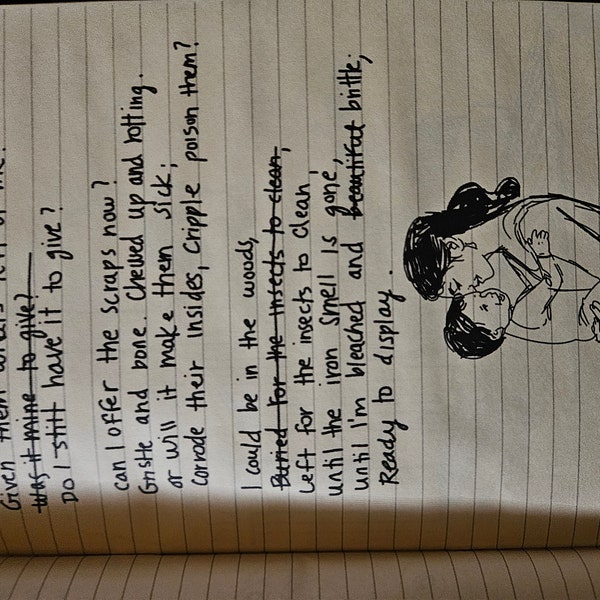 Given them what's left of me?
Was it mine to give?
Do I still have it to give?
can I offer the scraps now?
Gristle and bone. Chewed up and rotting.
or will it make them sick;
Corrode their insides, Cripple poison them?
I could be in the woods,
Buried for the insects to clean,
Left for the insects to clean,
until the iron smell is gone,
until I'm bleached and beautiful brittle;
Ready to display.